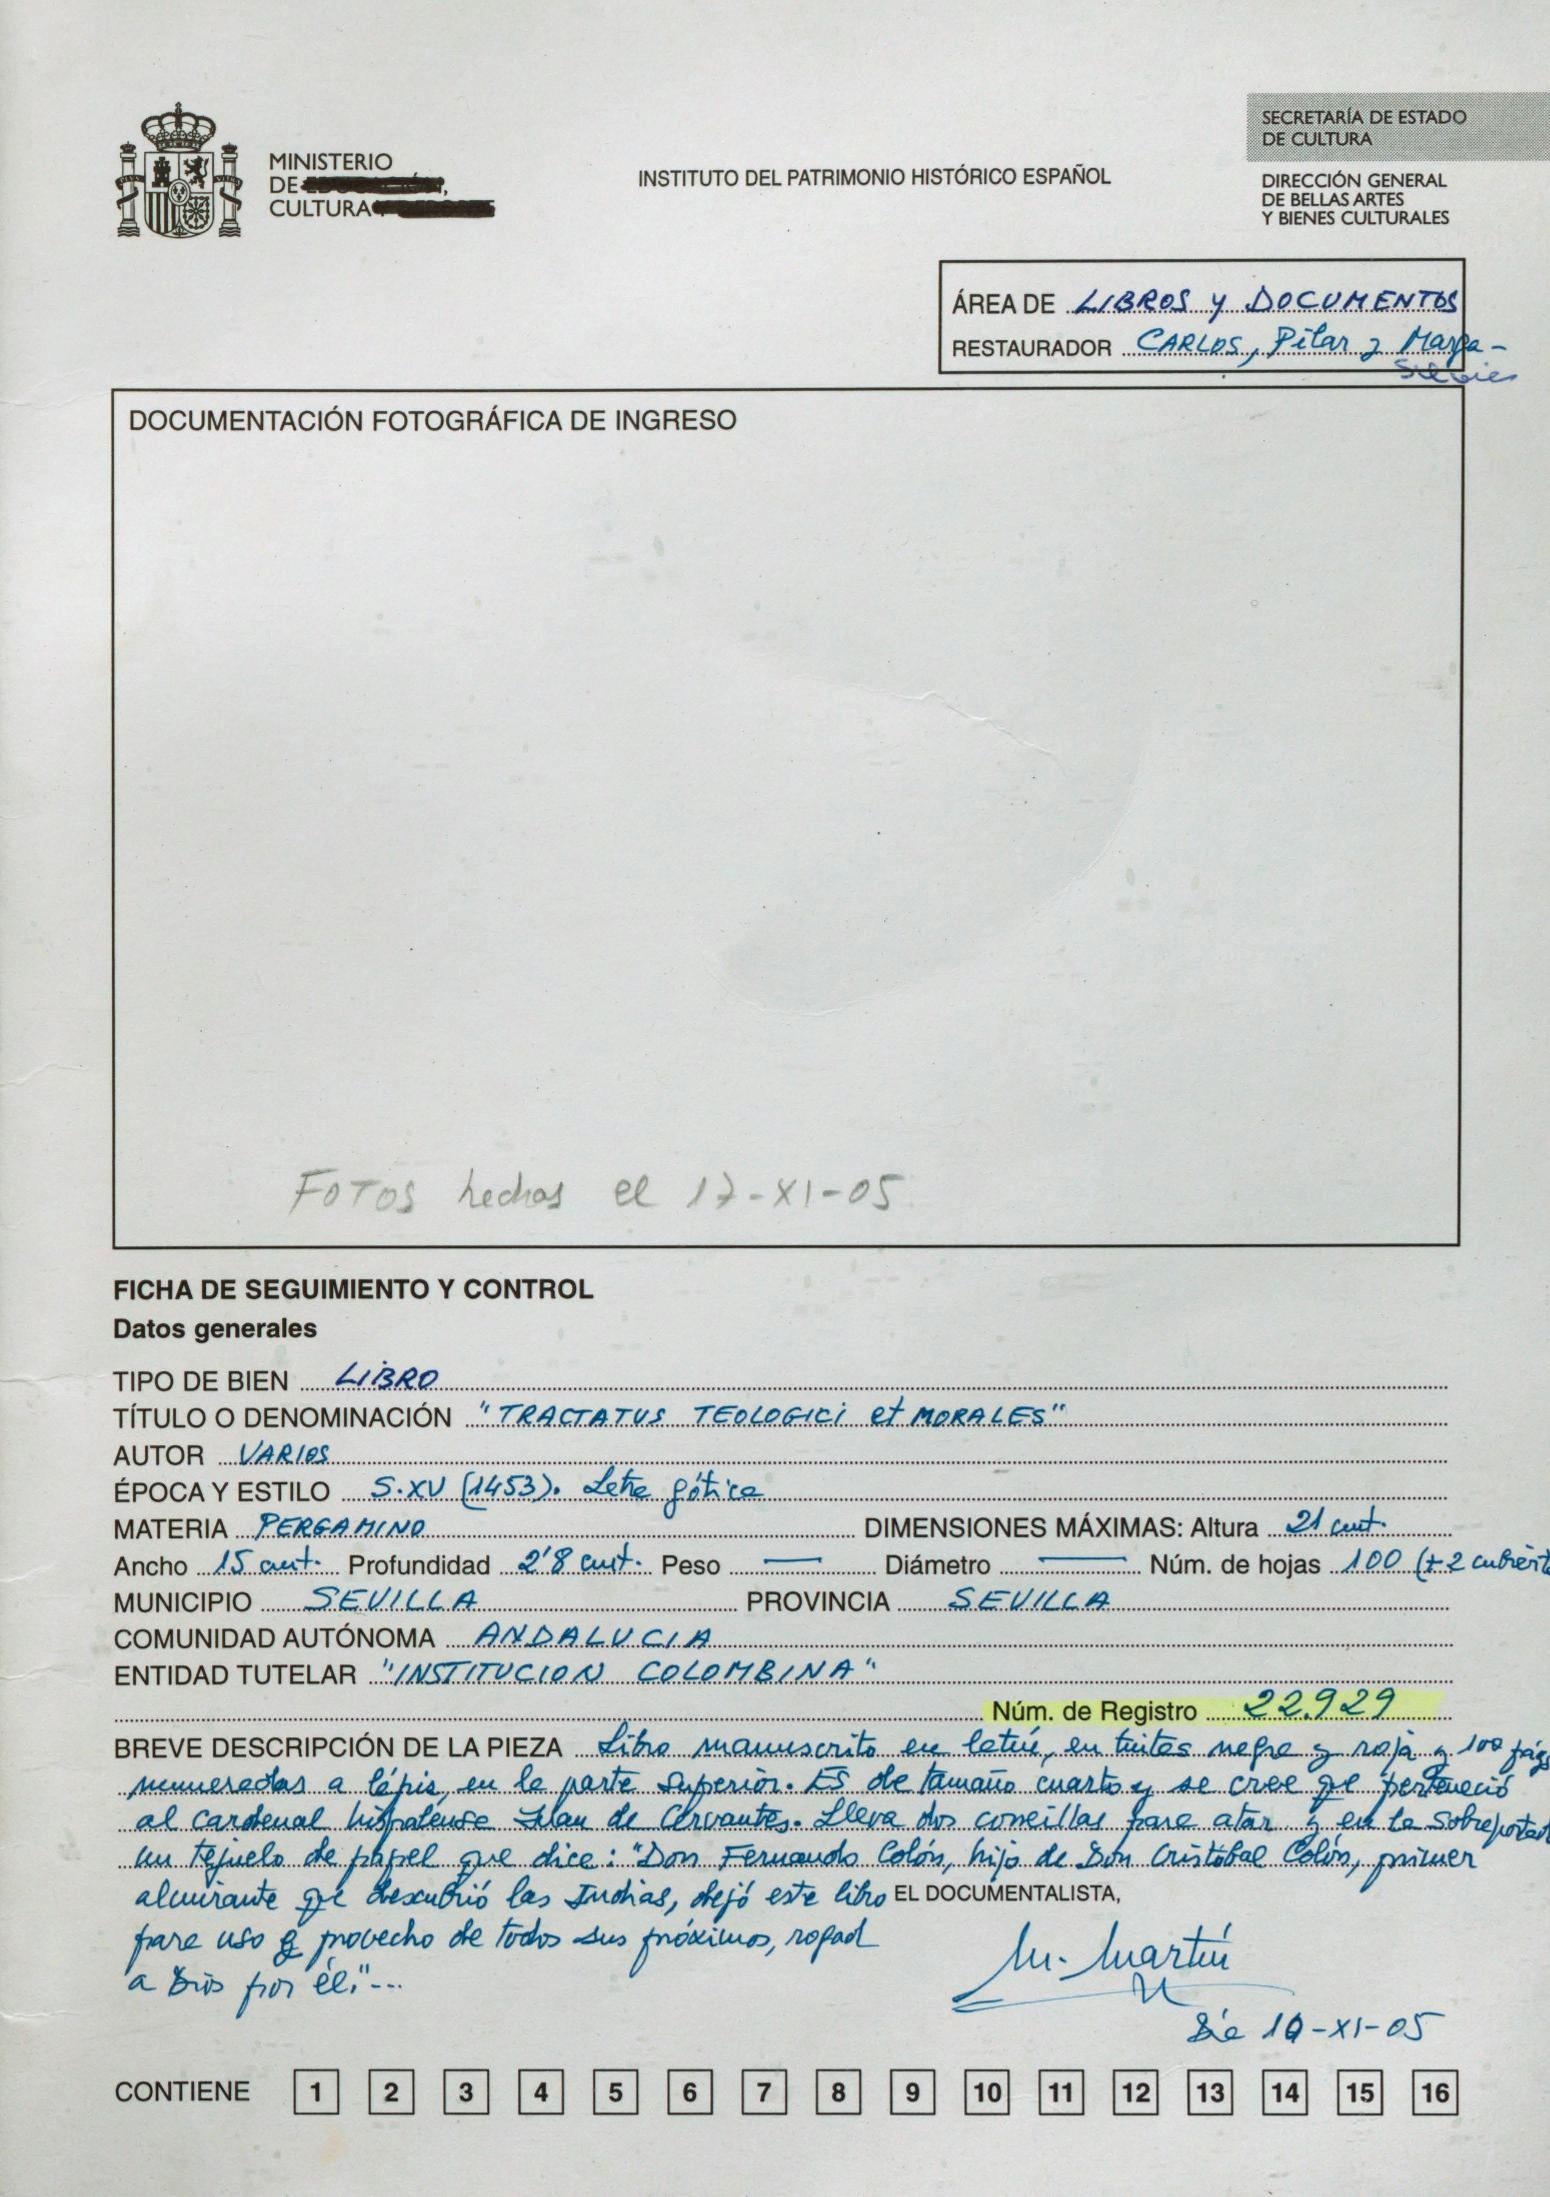 MINISTERIO
DE
CULTURA
INSTITUTO DEL PATRIMONIO HISTÓRICO ESPAÑOL
SECRETARÍA DE ESTADO
DE CULTURA
DIRECCIÓN GENERAL
DE BELLAS ARTES
Y BIENES CULTURALES
ÁREA DE LIBROS y DOCUMENTOS
RESTAURADOR CARLOS, Pilar y Marga-
DOCUMENTACIÓN FOTOGRÁFICA DE INGRESO
FOTOS hechas el 17-XI-05
FICHA DE SEGUIMIENTO Y CONTROL
Datos generales
TIPO DE BIEN LIBRO
TÍTULO O DENOMINACIÓN "TRACTATUS TEOLOGICI et MORALES"
AUTOR VARIOS
ÉPOCA Y ESTILO S.XV (1453). Letra gótica
MATERIA PERGAMINO DIMENSIONES MÁXIMAS: Altura 21 cmt.
Ancho 15 cmt. Profundidad 2'8 cmt. Peso — Diámetro — Núm. de hojas 100 (+2 cubierta
MUNICIPIO SEVILLA PROVINCIA SEVILLA
COMUNIDAD AUTÓNOMA ANDALUCIA
ENTIDAD TUTELAR "INSTITUCION COLOMBINA"
Núm. de Registro 22.929
BREVE DESCRIPCIÓN DE LA PIEZA Libro manuscrito en latín, en tintas negra y roja y 100 págs
numeradas a lápiz, en la parte superior. ES de tamaño cuarto y se cree que perteneció
al cardenal hispalense Juan de Cervantes. Lleva dos correillas para atar y en la sobreportad
un tejuelo de papel que dice: "Don Fernando Colón, hijo de Don Cristóbal Colón, primer
almirante que descubrió las Indias, dejó este libro
para uso y provecho de todos sus próximos, rogad
a Dios por él."...
EL DOCUMENTALISTA,
M. Martín
Día 10-XI-05
CONTIENE 1 2 3 4 5 6 7 8 9 10 11 12 13 14 15 16